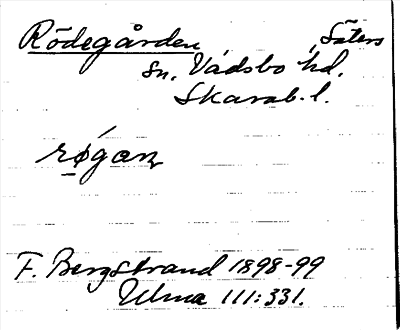 Rödegården, Säters
sn, Vadsbo hd.
Skarab. l.
røgan
F. Bergstrand 1898-99
Ulma 111:331.